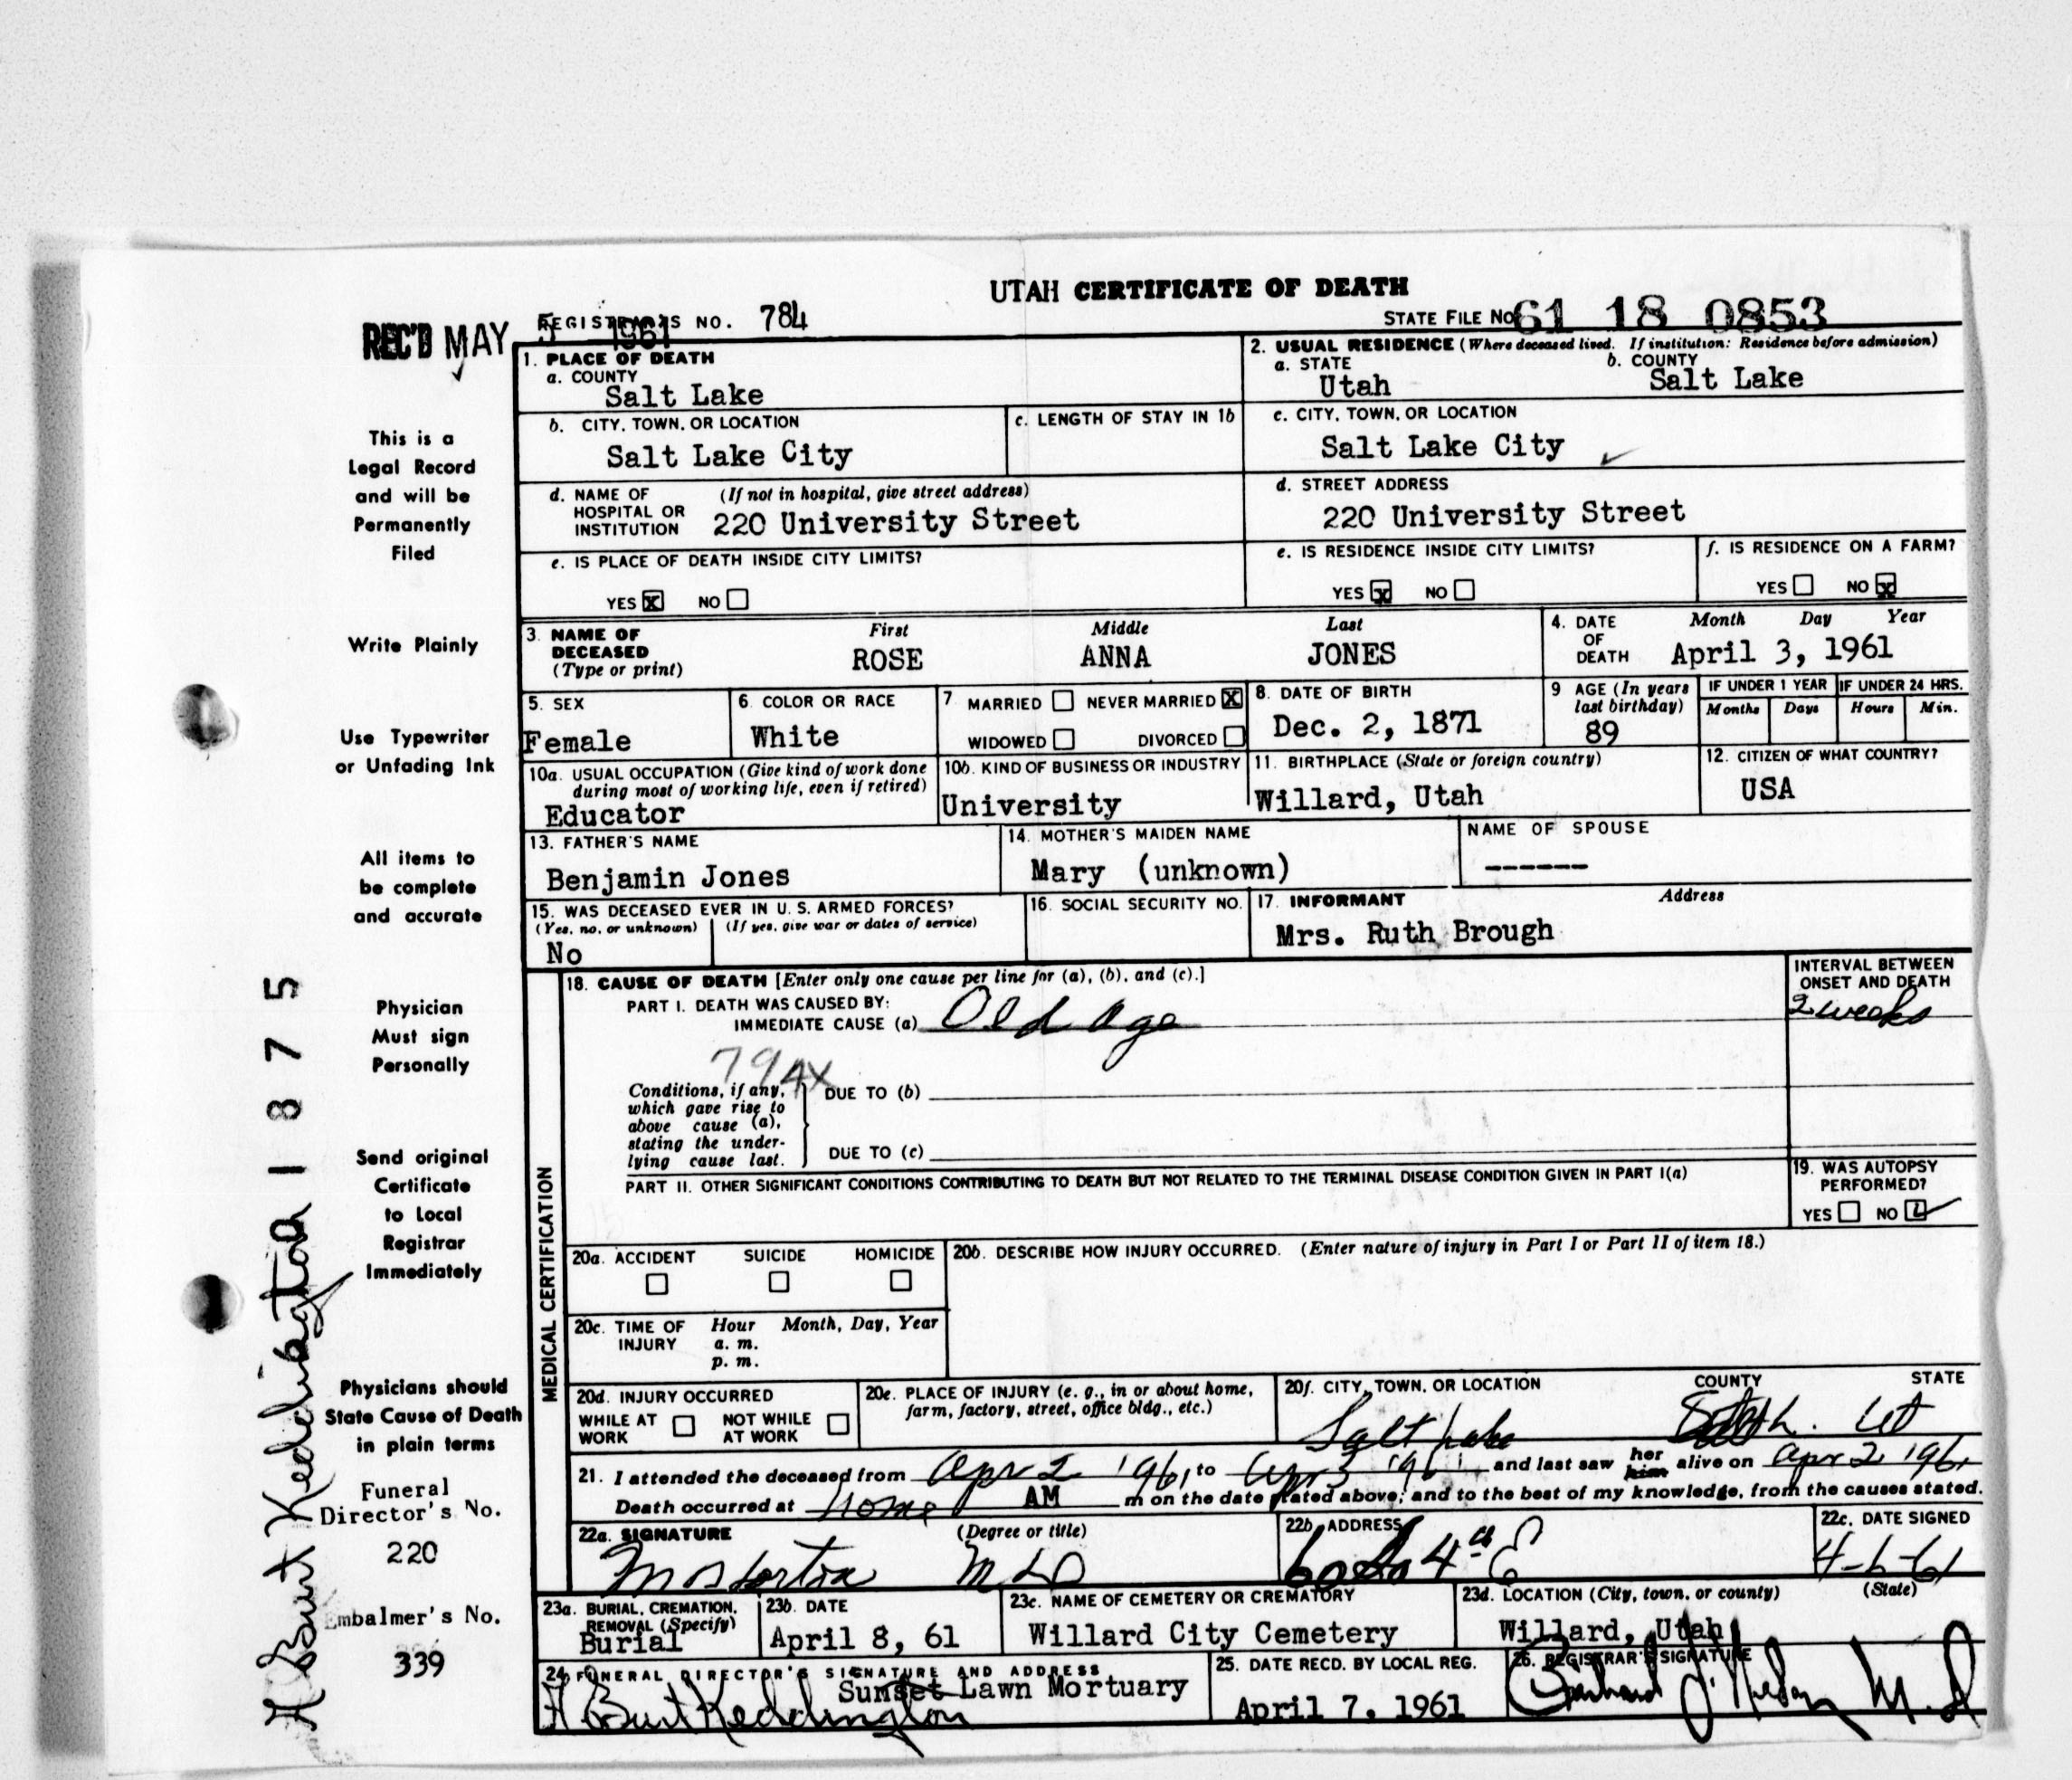 UTAH CERTIFICATE OF DEATH
REC'D MAY 5 1961
REGISTRAR'S NO. 784
STATE FILE NO. 61 18 0853
This is a
Legal Record
and will be
Permanently
Filed
Write Plainly
Use Typewriter
or Unfading Ink
All items to
be complete
and accurate
Physician
Must sign
Personally
Send original
Certificate
to Local
Registrar
Immediately
Physicians should
State Cause of Death
in plain terms
Funeral
Director's No.
220
Embalmer's No.
339
H Burt Keddington 1875
1. PLACE OF DEATH
a. COUNTY
Salt Lake
b. CITY, TOWN, OR LOCATION
Salt Lake City
c. LENGTH OF STAY IN 1b
d. NAME OF HOSPITAL OR INSTITUTION (If not in hospital, give street address)
220 University Street
e. IS PLACE OF DEATH INSIDE CITY LIMITS?
YES X NO
2. USUAL RESIDENCE (Where deceased lived. If institution: Residence before admission)
a. STATE
Utah
b. COUNTY
Salt Lake
c. CITY, TOWN, OR LOCATION
Salt Lake City
d. STREET ADDRESS
220 University Street
e. IS RESIDENCE INSIDE CITY LIMITS?
YES X NO
f. IS RESIDENCE ON A FARM?
YES NO X
3. NAME OF DECEASED (Type or print)
First Middle Last
ROSE ANNA JONES
4. DATE OF DEATH Month Day Year
April 3, 1961
5. SEX
Female
6. COLOR OR RACE
White
7 MARRIED NEVER MARRIED X
WIDOWED DIVORCED
8. DATE OF BIRTH
Dec. 2, 1871
9 AGE (In years last birthday)
89
IF UNDER 1 YEAR IF UNDER 24 HRS.
Months Days Hours Min.
10a. USUAL OCCUPATION (Give kind of work done during most of working life, even if retired)
Educator
10b. KIND OF BUSINESS OR INDUSTRY
University
11. BIRTHPLACE (State or foreign country)
Willard, Utah
12. CITIZEN OF WHAT COUNTRY?
USA
13. FATHER'S NAME
Benjamin Jones
14. MOTHER'S MAIDEN NAME
Mary (unknown)
NAME OF SPOUSE
------
15. WAS DECEASED EVER IN U. S. ARMED FORCES?
(Yes, no, or unknown) (If yes, give war or dates of service)
No
16. SOCIAL SECURITY NO.
17. INFORMANT Address
Mrs. Ruth Brough
MEDICAL CERTIFICATION
18. CAUSE OF DEATH [Enter only one cause per line for (a), (b), and (c).]
PART I. DEATH WAS CAUSED BY:
IMMEDIATE CAUSE (a) Old Age
INTERVAL BETWEEN ONSET AND DEATH
2 weeks
794X
Conditions, if any, which gave rise to above cause (a), stating the underlying cause last.
DUE TO (b)
DUE TO (c)
PART II. OTHER SIGNIFICANT CONDITIONS CONTRIBUTING TO DEATH BUT NOT RELATED TO THE TERMINAL DISEASE CONDITION GIVEN IN PART I(a)
19. WAS AUTOPSY PERFORMED?
YES NO ✓
20a. ACCIDENT SUICIDE HOMICIDE
20b. DESCRIBE HOW INJURY OCCURRED. (Enter nature of injury in Part I or Part II of item 18.)
20c. TIME OF INJURY Hour Month, Day, Year
a. m.
p. m.
20d. INJURY OCCURRED
WHILE AT WORK NOT WHILE AT WORK
20e. PLACE OF INJURY (e. g., in or about home, farm, factory, street, office bldg., etc.)
20f. CITY, TOWN, OR LOCATION COUNTY STATE
Salt Lake Ut
21. I attended the deceased from Apr 2 1961, to Apr 3 1961, and last saw her him alive on Apr 2 1961
Death occurred at home AM m on the date stated above; and to the best of my knowledge, from the causes stated.
22a. SIGNATURE (Degree or title)
M D
22b. ADDRESS
4th E
22c. DATE SIGNED
4-6-61
23a. BURIAL, CREMATION, REMOVAL (Specify)
Burial
23b. DATE
April 8, 61
23c. NAME OF CEMETERY OR CREMATORY
Willard City Cemetery
23d. LOCATION (City, town, or county) (State)
Willard, Utah
24. FUNERAL DIRECTOR'S SIGNATURE AND ADDRESS
Sunset Lawn Mortuary
H Burt Keddington
25. DATE RECD. BY LOCAL REG.
April 7, 1961
26. REGISTRAR'S SIGNATURE
M.D